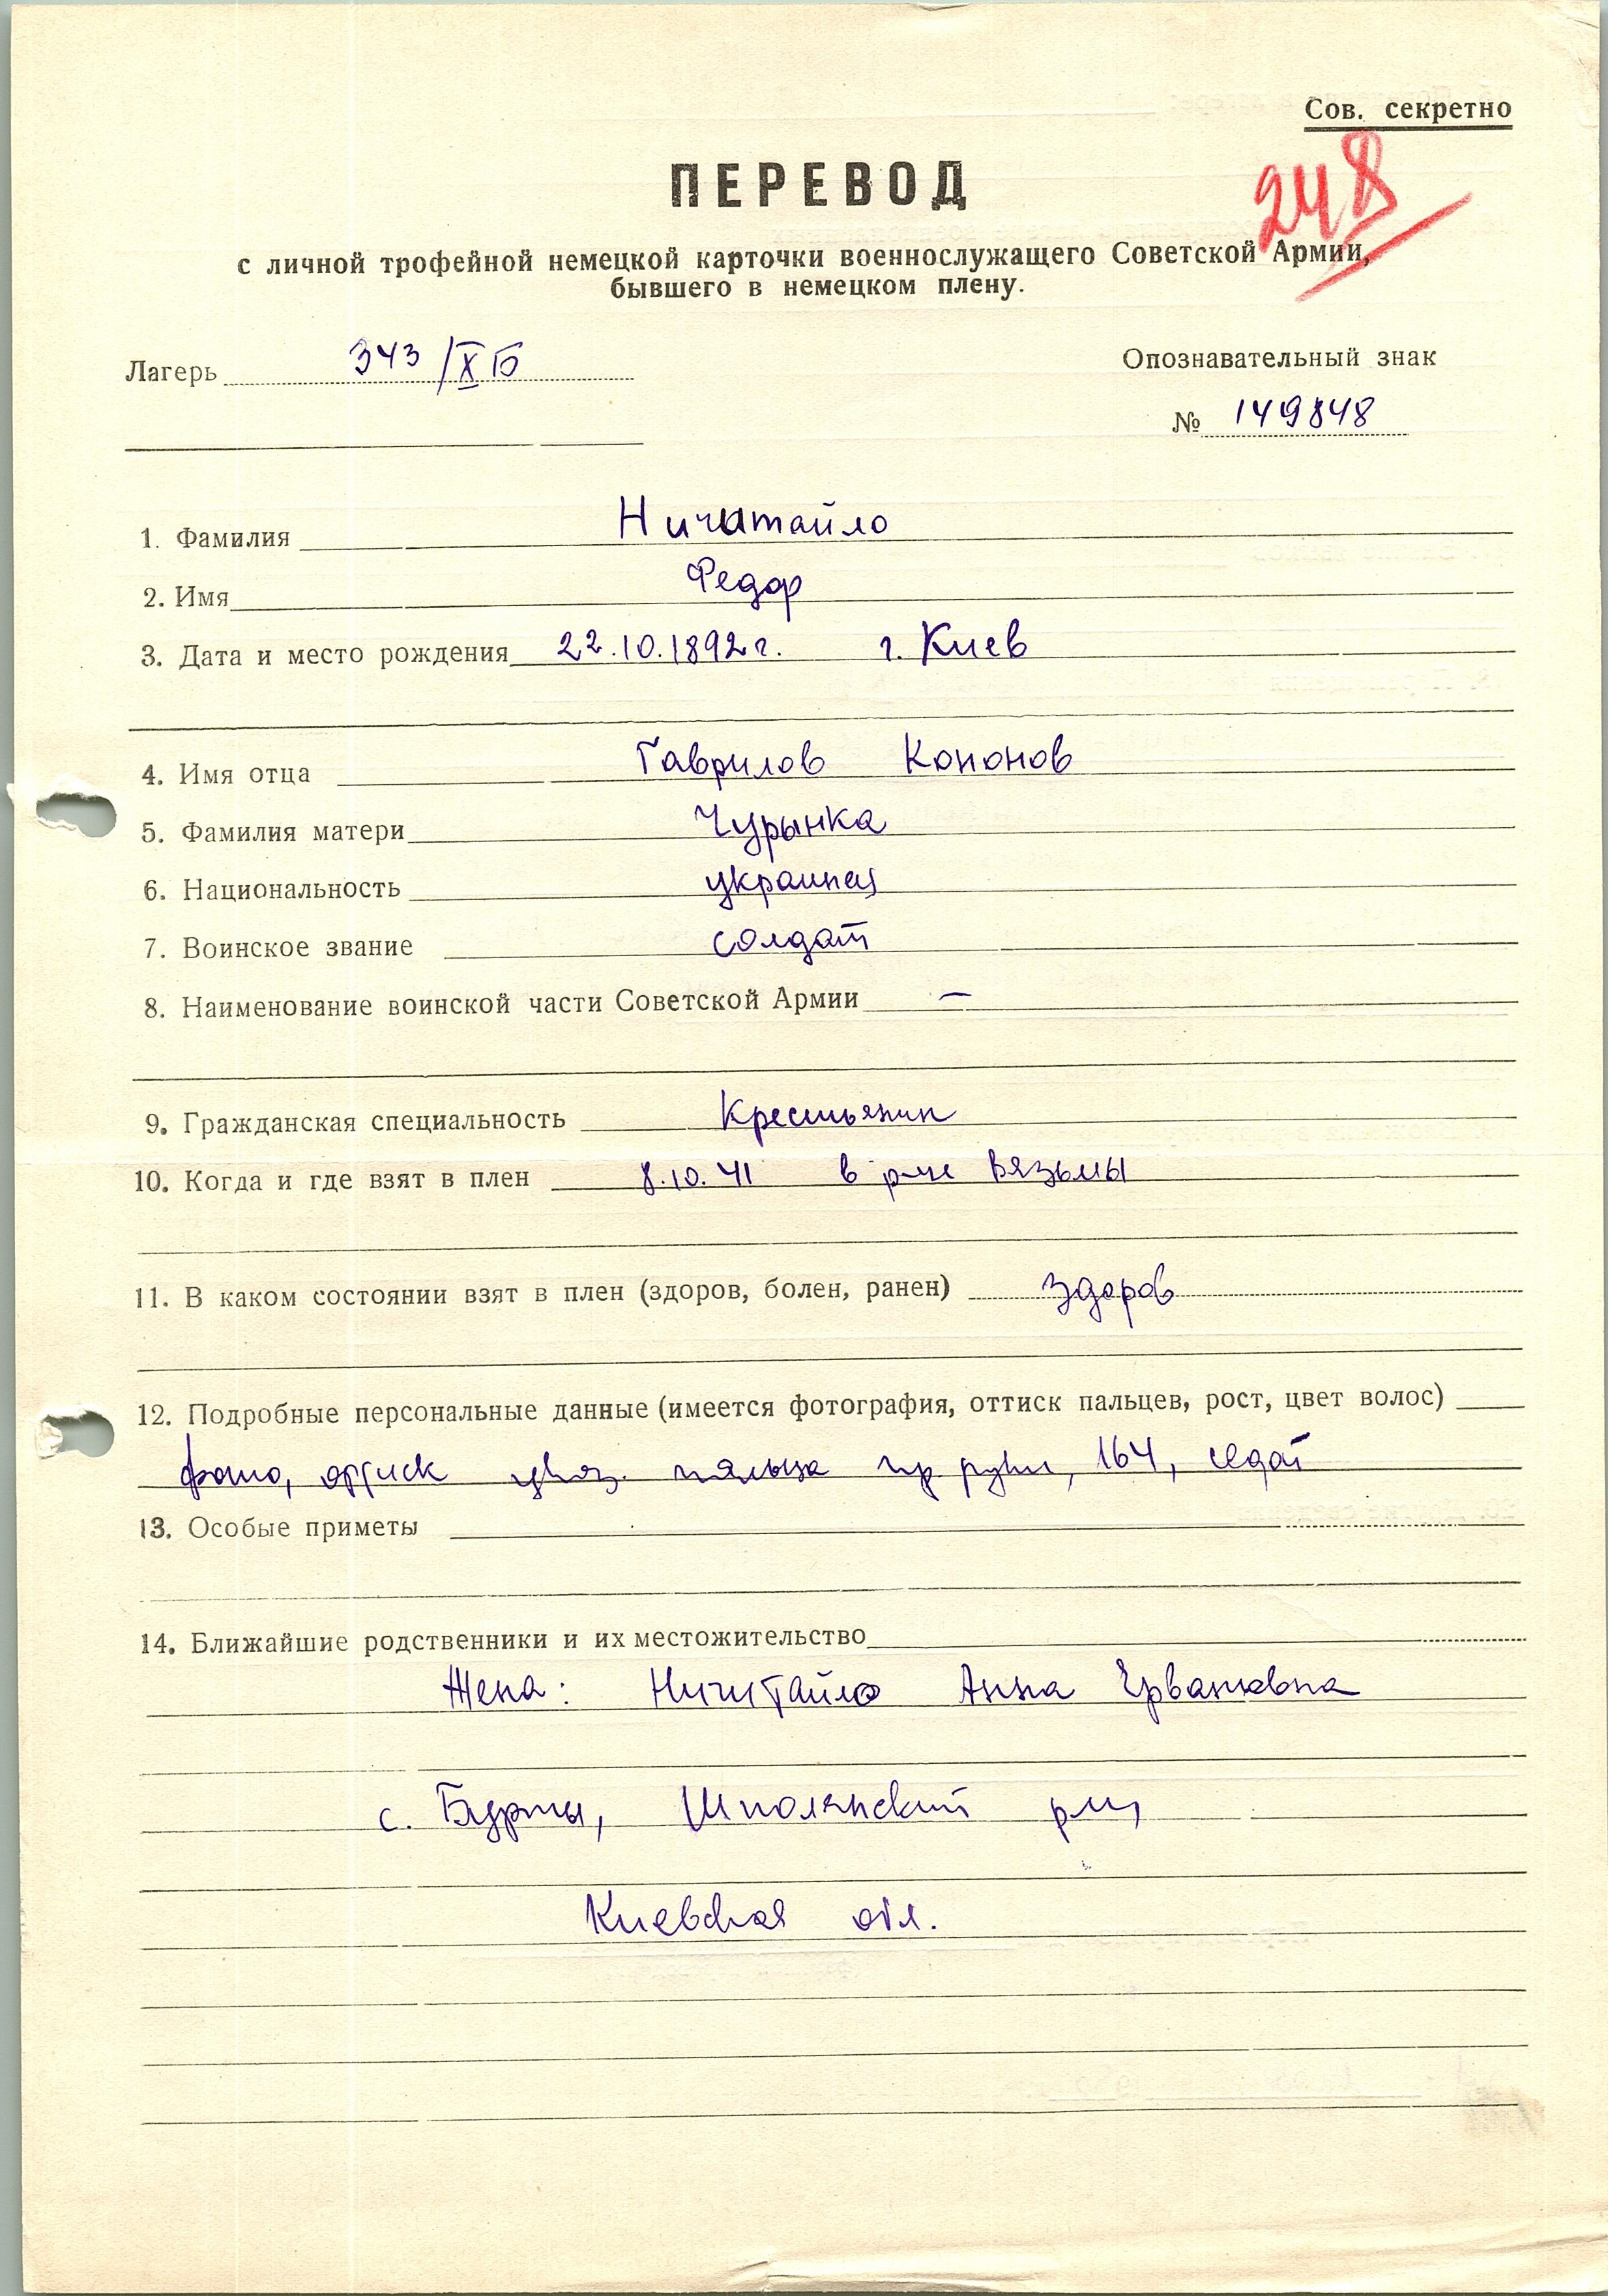 Сов. секретно
248
ПЕРЕВОД
с личной трофейной немецкой карточки военнослужащего Советской Армии,
бывшего в немецком плену.
Лагерь 343/XБ
Опознавательный знак
№ 149848
1. Фамилия Ничатайло
2. Имя Федор
3. Дата и место рождения 22.10.1892г. г. Киев
4. Имя отца Гаврилов Кононов
5. Фамилия матери Чурынка
6. Национальность украинец
7. Воинское звание солдат
8. Наименование воинской части Советской Армии —
9. Гражданская специальность Крестьянин
10. Когда и где взят в плен 8.10.41 в р-не Вязьмы
11. В каком состоянии взят в плен (здоров, болен, ранен) здоров
12. Подробные персональные данные (имеется фотография, оттиск пальцев, рост, цвет волос)
фото, оттиск указ. пальца пр. руки, 164, седой
13. Особые приметы
14. Ближайшие родственники и их местожительство
Жена: Ничитайло Анна
с. Бурты, Шполянский р-н,
Киевская обл.